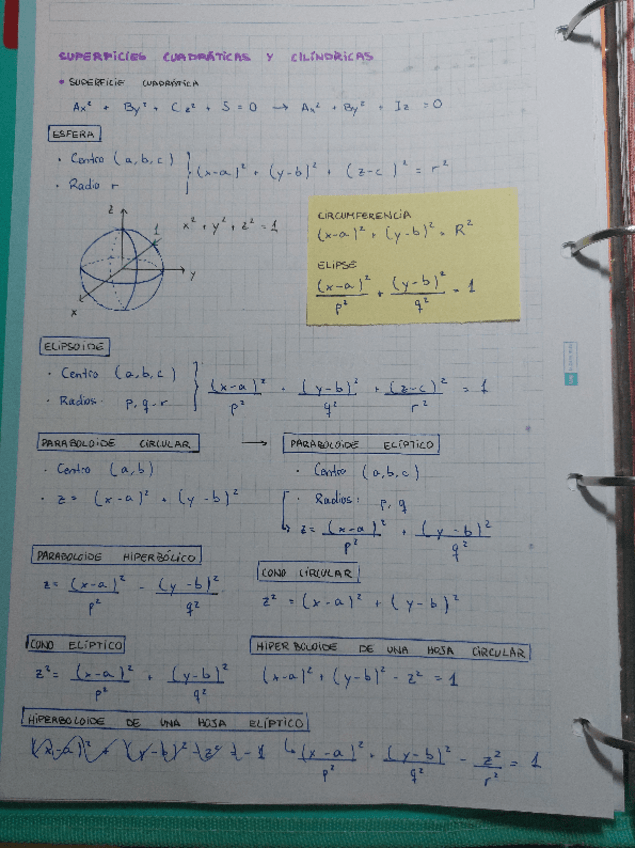 SUPERFICIES CUADRÁTICAS Y CILÍNDRICAS
• SUPERFICIE CUADRÁTICA
Ax² + By² + Cz² + S = 0 → Ax² + By² + Iz = 0
ESFERA
• Centro (a,b,c)
• Radio r
(x-a)² + (y-b)² + (z-c)² = r²
z
1
y
x
x² + y² + z² = 1
CIRCUMFERENCIA
(x-a)² + (y-b)² = R²
ELIPSE
(x-a)²/p² + (y-b)²/q² = 1
ELIPSOIDE
• Centro (a,b,c)
• Radios: p, q, r
(x-a)²/p² + (y-b)²/q² + (z-c)²/r² = 1
PARABOLOIDE CIRCULAR →
• Centro (a,b)
• z = (x-a)² + (y-b)²
PARABOLOIDE ELÍPTICO
• Centro (a,b,c)
• Radios: p, q
↳ z = (x-a)²/p² + (y-b)²/q²
PARABOLOIDE HIPERBÓLICO
z = (x-a)²/p² - (y-b)²/q²
CONO CIRCULAR
z² = (x-a)² + (y-b)²
CONO ELÍPTICO
z² = (x-a)²/p² + (y-b)²/q²
HIPERBOLOIDE DE UNA HOJA CIRCULAR
(x-a)² + (y-b)² - z² = 1
HIPERBOLOIDE DE UNA HOJA ELÍPTICO
↳ (x-a)²/p² + (y-b)²/q² - z²/r² = 1